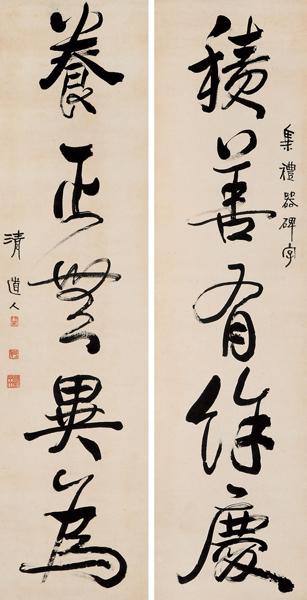 集禮器碑字
積善有餘慶
養正無異為
清道人